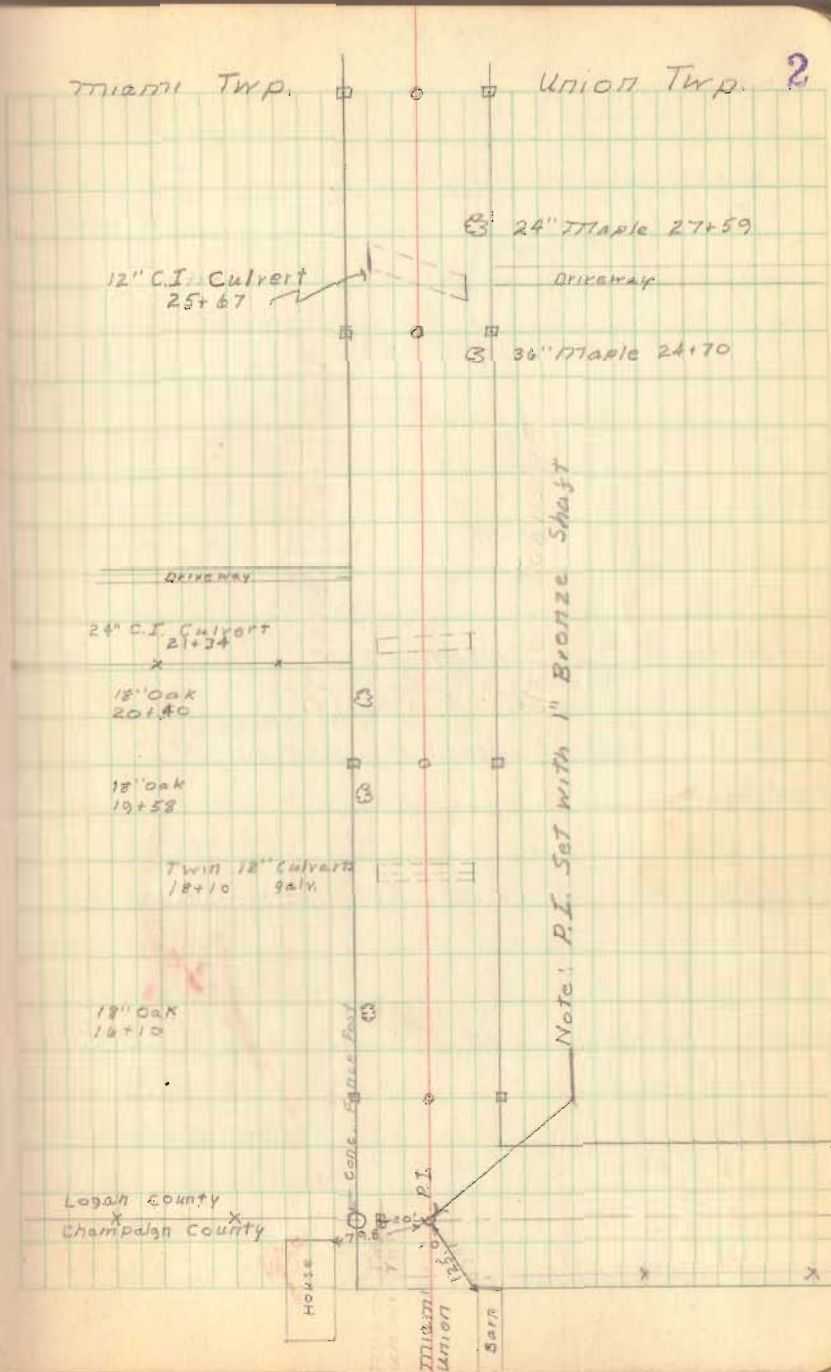 2
Miami Twp.
Union Twp.
24" Maple 27+59
Driveway
12" C.I. Culvert
25+67
36" Maple 24+70
Driveway
24" C.I. Culvert
21+34
18" Oak
20+40
18" Oak
19+58
Twin 12" Culverts
18+10 galv.
18" Oak
16+10
Note: P.I. Set with 1" Bronze Shaft
Conc. Fence Post
P.I.
Logan County
Champaign County
125.0
House
Miami
Union
Barn